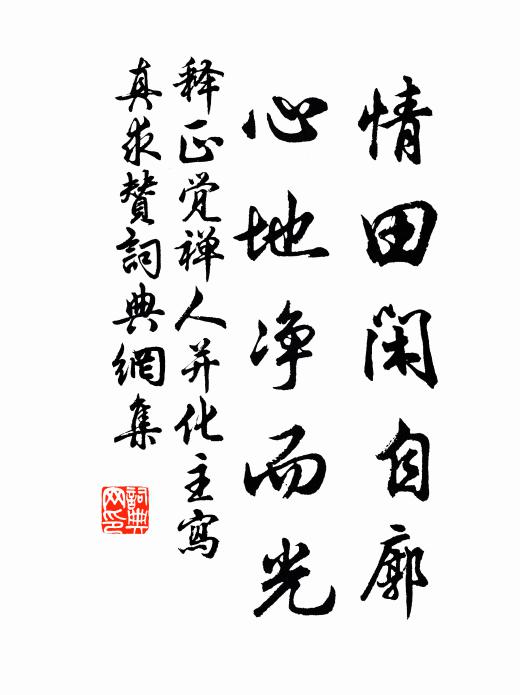 情田閑自廓
心地净而光
释正觉禅人并化主寫
真求贊詞典網集
詞典网印